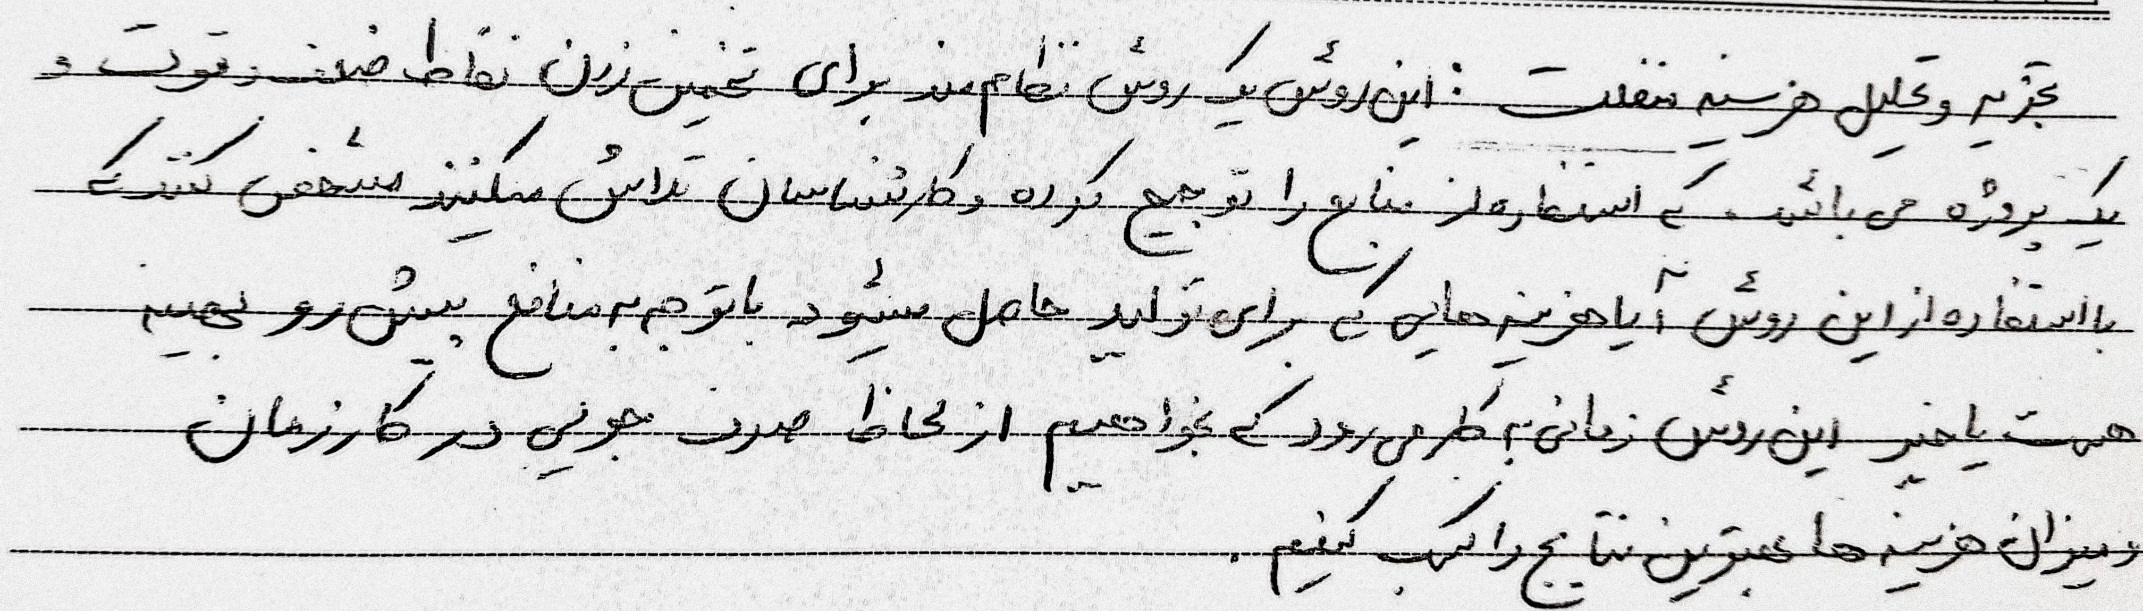 تجزیه و تحلیل هزینه منفعت : این روش یک روش نظام مند برای تخمین زدن نقاط ضعف و قوت و
یک پروژه می باشد. که استفاده از منابع را توجیح کرده و کارشناسان تلاش میکنند مشخص کنند که
با استفاده از این روش آیا هزینه هایی که برای تولید حاصل میشود با توجه به منافع پیش رو بهینه
هست یا خیر این روش زمانی به کار می رود که بخواهیم از لحاظ صرفه جویی در کار زمان
و میزان هزینه ها بهترین نتایج را کسب کنیم .